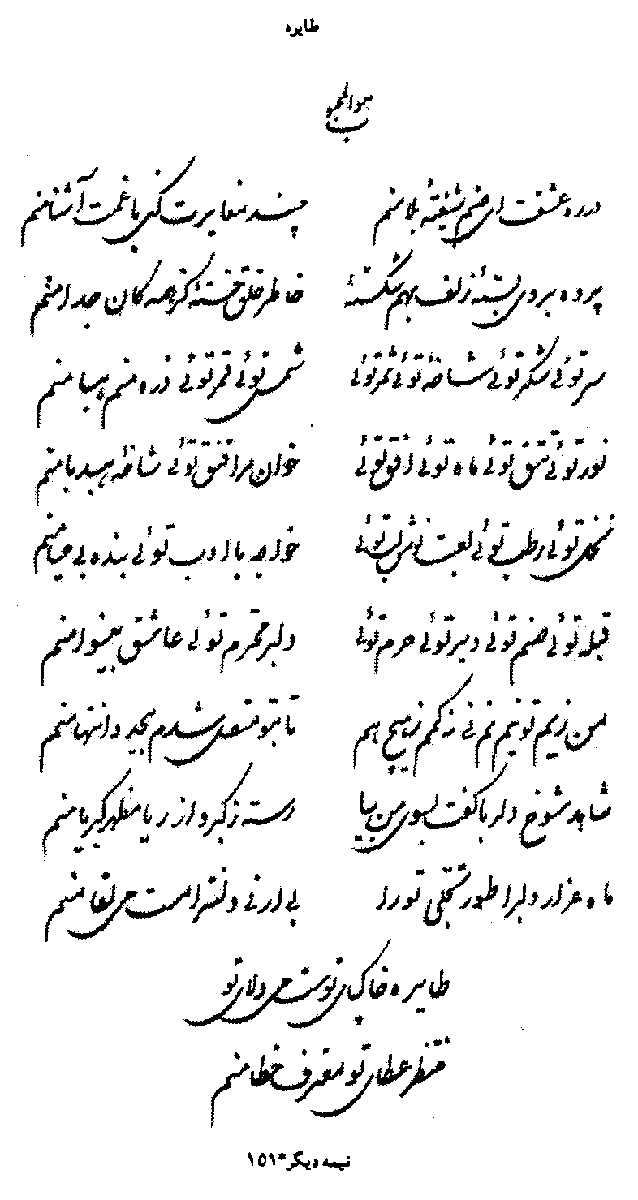 طایره
هو المحبوب
در ره عشقت ای صنم شیفتهٔ بلا منم چند مغایرت کنی با غمت آشنا منم
پرده بروی بستهٔ زلف بهم شکستهٔ خاطر خلق خستهٔ کز همه کان جدا منم
شیر توئی شکر توئی شاخه توئی ثمر توئی شمس توئی قمر توئی ذره منم هبا منم
نور توئی تتق توئی ماه توئی افق توئی خوان مرا قنق توئی شاخهٔ هندبا منم
نخل توئی رطب توئی لعبت نوش لب توئی خواجه با ادب توئی بنده بی حیا منم
قبله توئی صنم توئی دیر توئی حرم توئی دلبر محترم توئی عاشق بینوا منم
من زیم تو نیم نم نی ز کم ز بیش هم تا بتو متصل شدم بیحد و انتها منم
شاهد شوخ دلربا گفت بسوی من بیا رسته ز کبر و از ریا مظهر کبریا منم
ماه هزار دلبرا طور تجلی تو را بی ارنی و لن ترا مست می لقا منم
طایره خاکپای تو مست می ولای تو
منتظر عطای تو معترف خطا منم
نیمه دیگر*۱۵۱